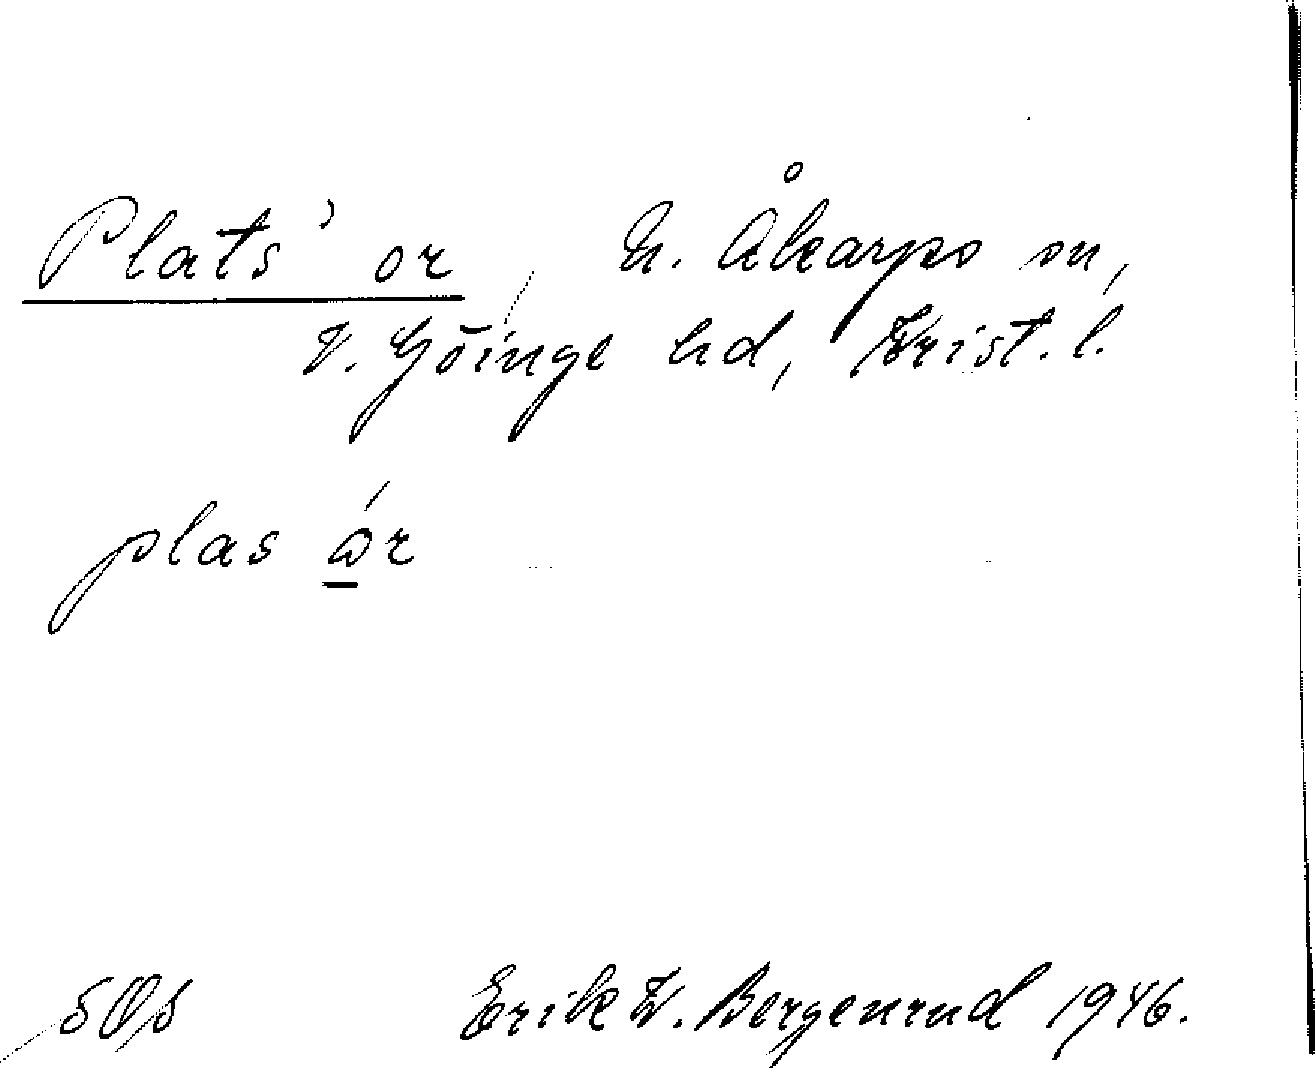 Plats' or, N. Åkarps sn,
V. Göinge hd, Krist. l.
plas ór
Erik K. Bergenrud 1946.